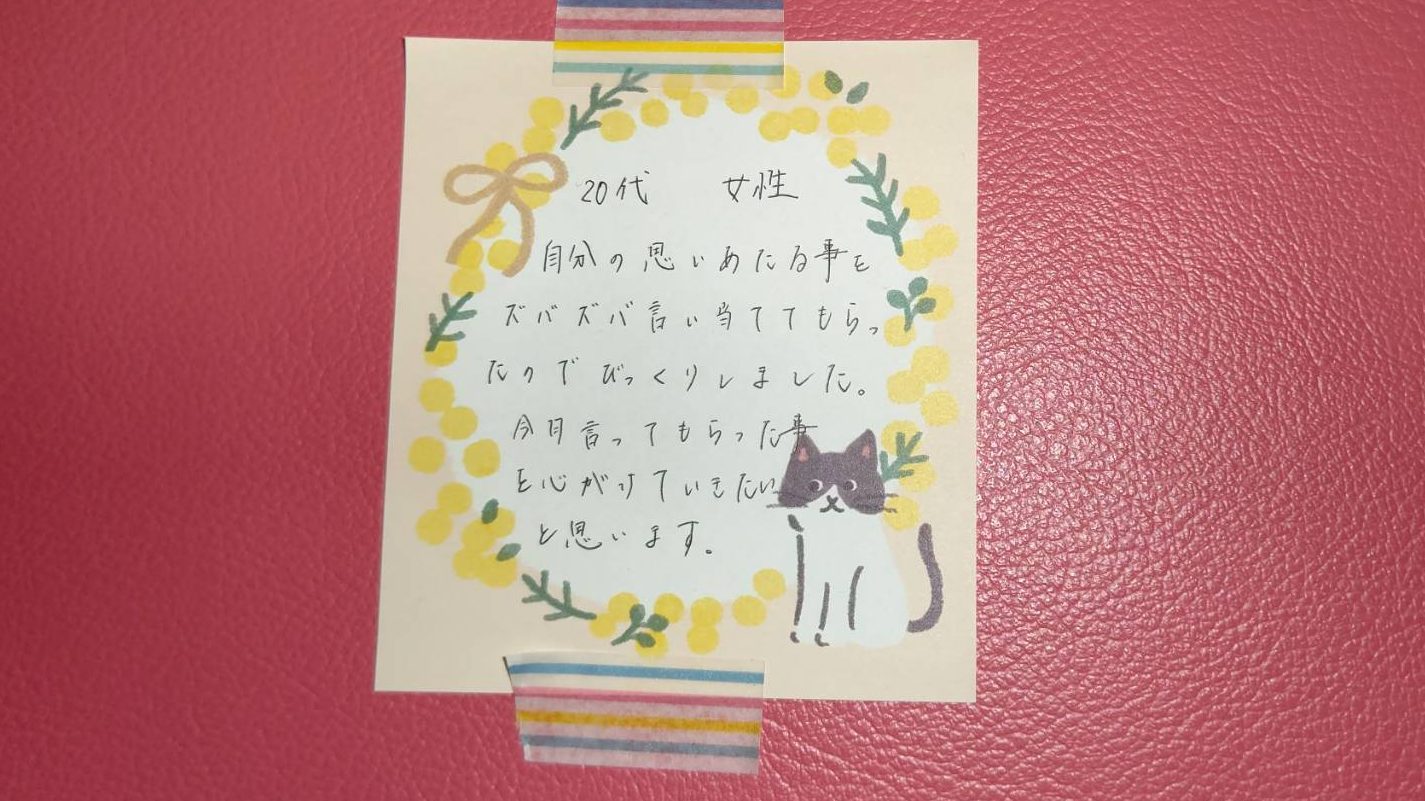 20代 女性
自分の思いあたる事を
ズバズバ言い当ててもらっ
たのでびっくりしました。
今日言ってもらった事
を心がけていきたい
と思います。